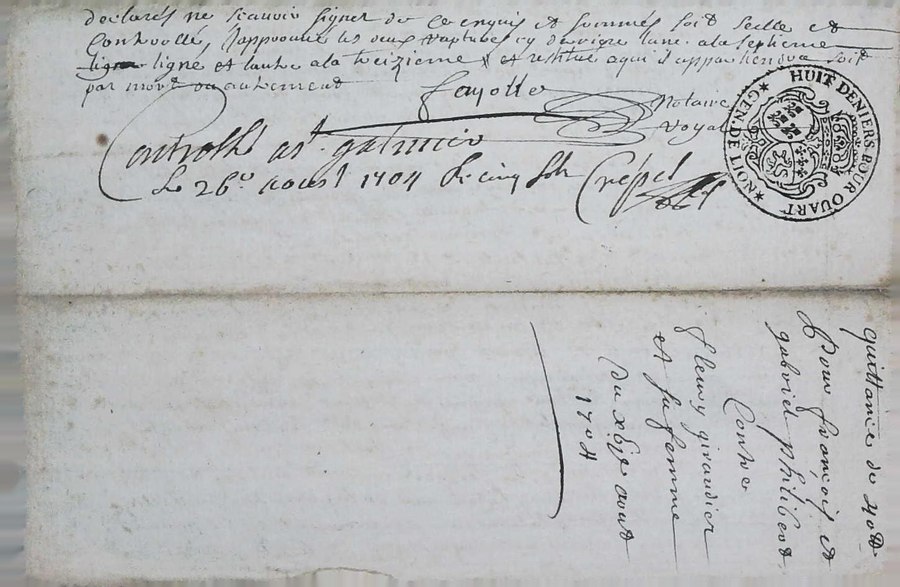 declarés ne scauoir signer de ce enquis et sommés soit scellé et
Controllé, J'approuue les deux ci derriere lune a la septieme
ligne et lautre a la treizieme et restitué a qui il appartiendra soit
par mort ou autrement
fayolle
Notaire
Royal
Controllé a st galmier
Le 26e aoust 1704 R cinq sols Crespet
HUIT DENIERS POUR QUART
GEN. DE
quittance de 40tt
Pour françois et
gabriel philibert
Contre
fleury giraudier
et sa femme
Du aout
1704